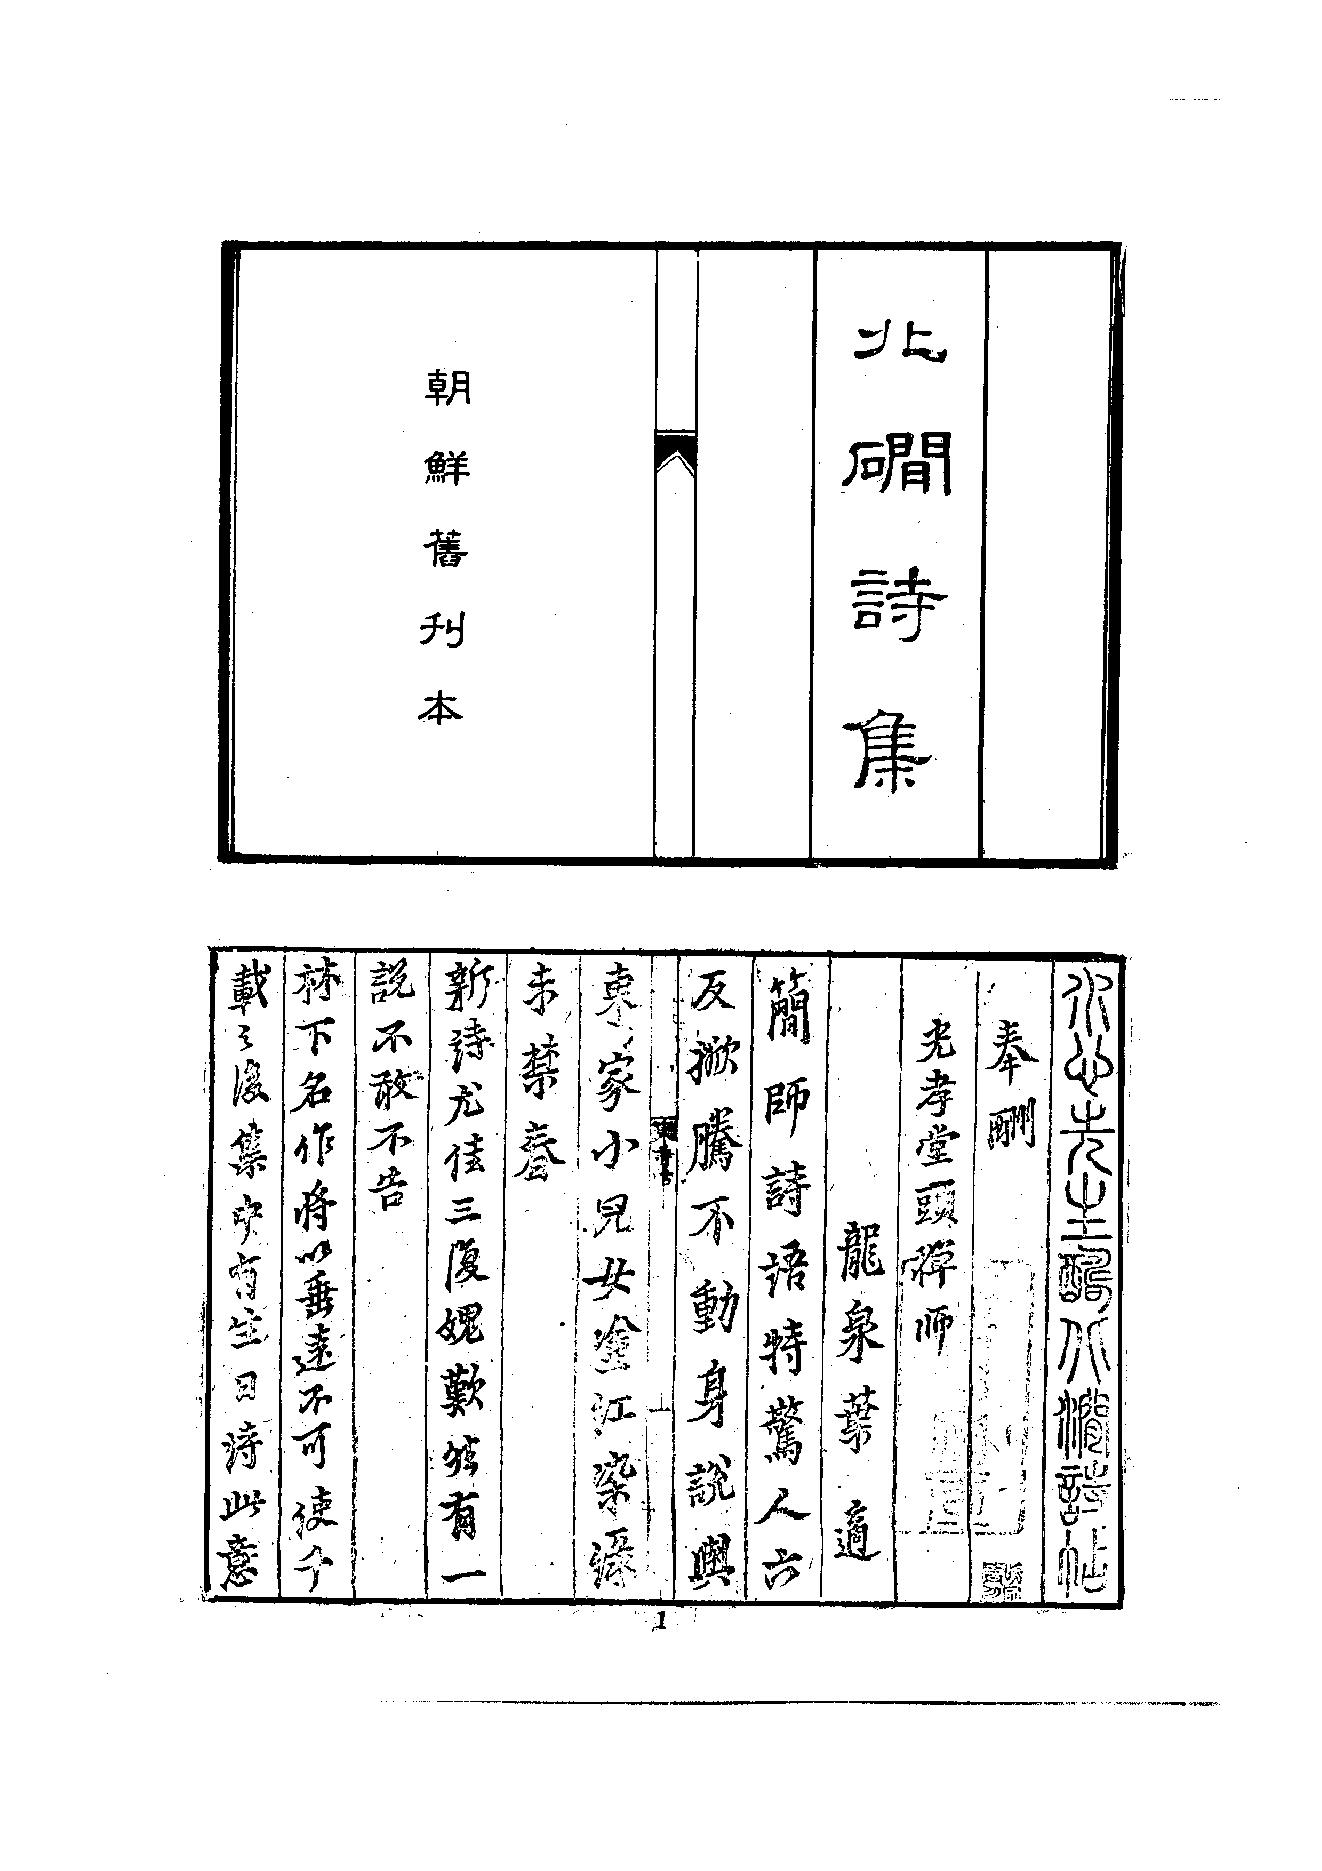 北磵詩集
朝鮮舊刊本
水心先生酬北磵詩帖
奉酬
光孝堂頭禪師
龍泉葉適
簡師詩語特驚人六
反掀騰不動身說與
東家小兒女塗江染綠
未禁春
新詩尤佳三復媿歎然有一
說不敢不告
林下名作將以垂遠不可使千
載之後集中有生日詩此意
1